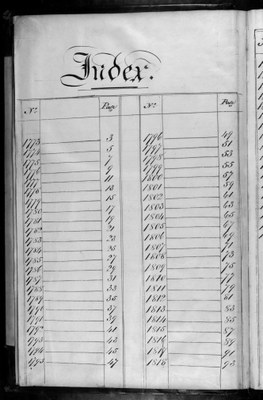 Index.
No. Page
1773 3
1774 5
1775 7
1776 9
1777 11
1778 13
1779 15
1780 17
1781 19
1782 21
1783 23
1784 25
1785 27
1786 29
1787 31
1788 33
1789 35
1790 37
1791 39
1792 41
1793 43
1794 45
1795 47
No. Page
1796 49
1797 51
1798 53
1799 55
1800 57
1801 59
1802 61
1803 63
1804 65
1805 67
1806 69
1807 71
1808 73
1809 75
1810 77
1811 79
1812 81
1813 83
1814 85
1815 87
1816 89
1817 91
1818 93